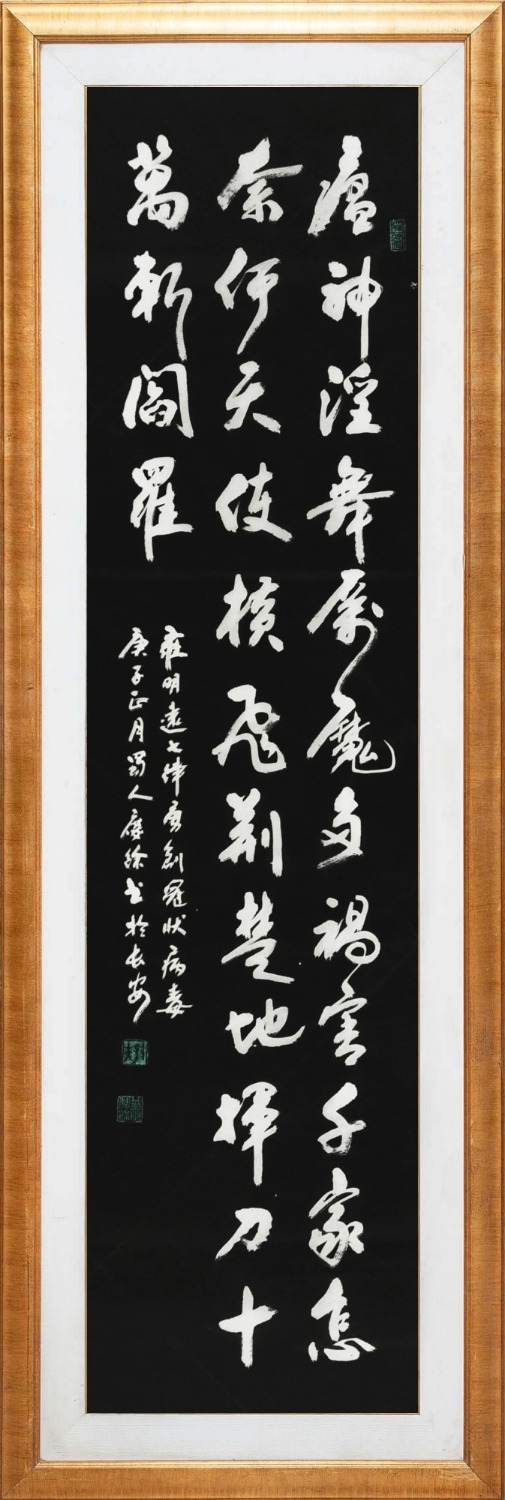 瘟神淫舞厲魔多禍害千家怎
奈何天使橫飛荊楚地揮刀十
萬斬閻羅
雍明遠七律勇創冠狀病毒
庚子正月蜀人徐书於长安